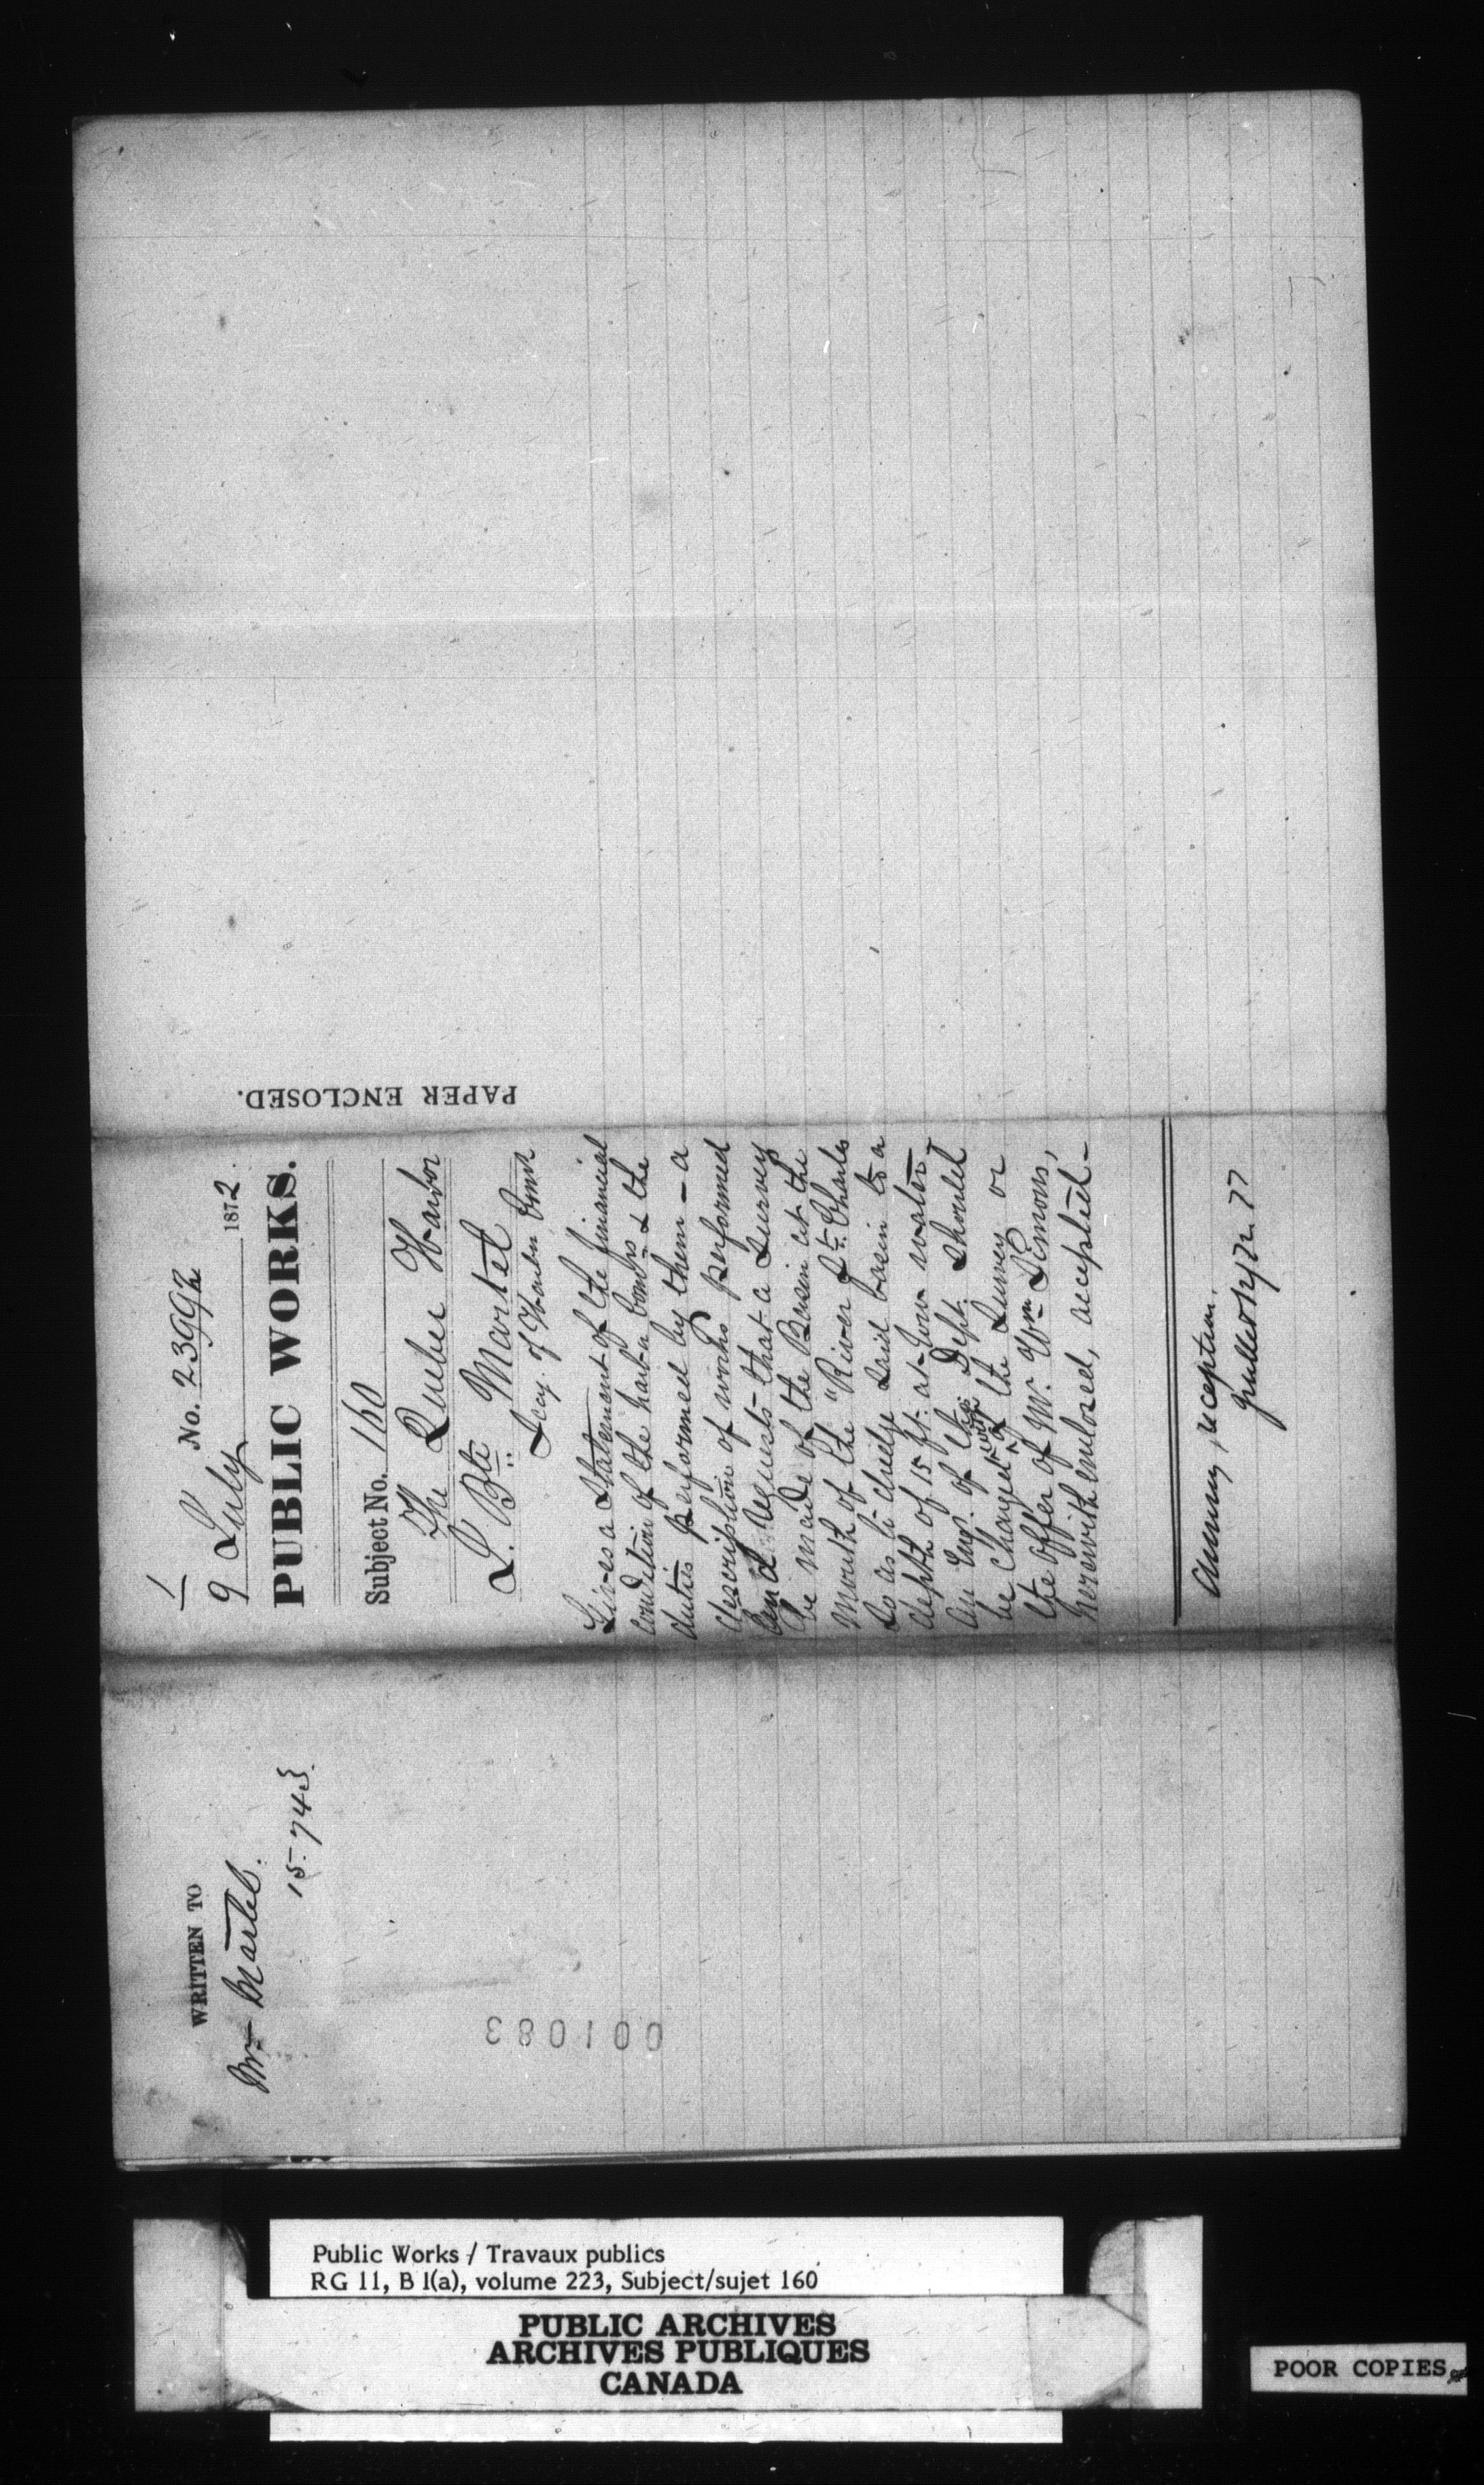 1
No. 23992
9 July 1872.
PUBLIC WORKS.
Subject No. 160
The Quebec Harbor
L. Bte Martel
Secy. of Harbor Comrs
Gives a Statement of the financial
condition of the harbor Commrs & the
duties performed by them – a
description of works performed
and requests that a Survey
be made of the Basin at the
Mouth of the "River St. Charles
so as to dredge said basin to a
depth of 15 ft. at low water
An Eng. of this Dept. should
be charged with the Survey or
the offer of Mr. Wm Simons,
herewith enclosed, accepted –
reception.
PAPER ENCLOSED.
WRITTEN TO
Mr Martel.
15743.
001083
Public Works / Travaux publics
RG 11, B 1(a), volume 223, Subject/sujet 160
PUBLIC ARCHIVES
ARCHIVES PUBLIQUES
CANADA
POOR COPIES